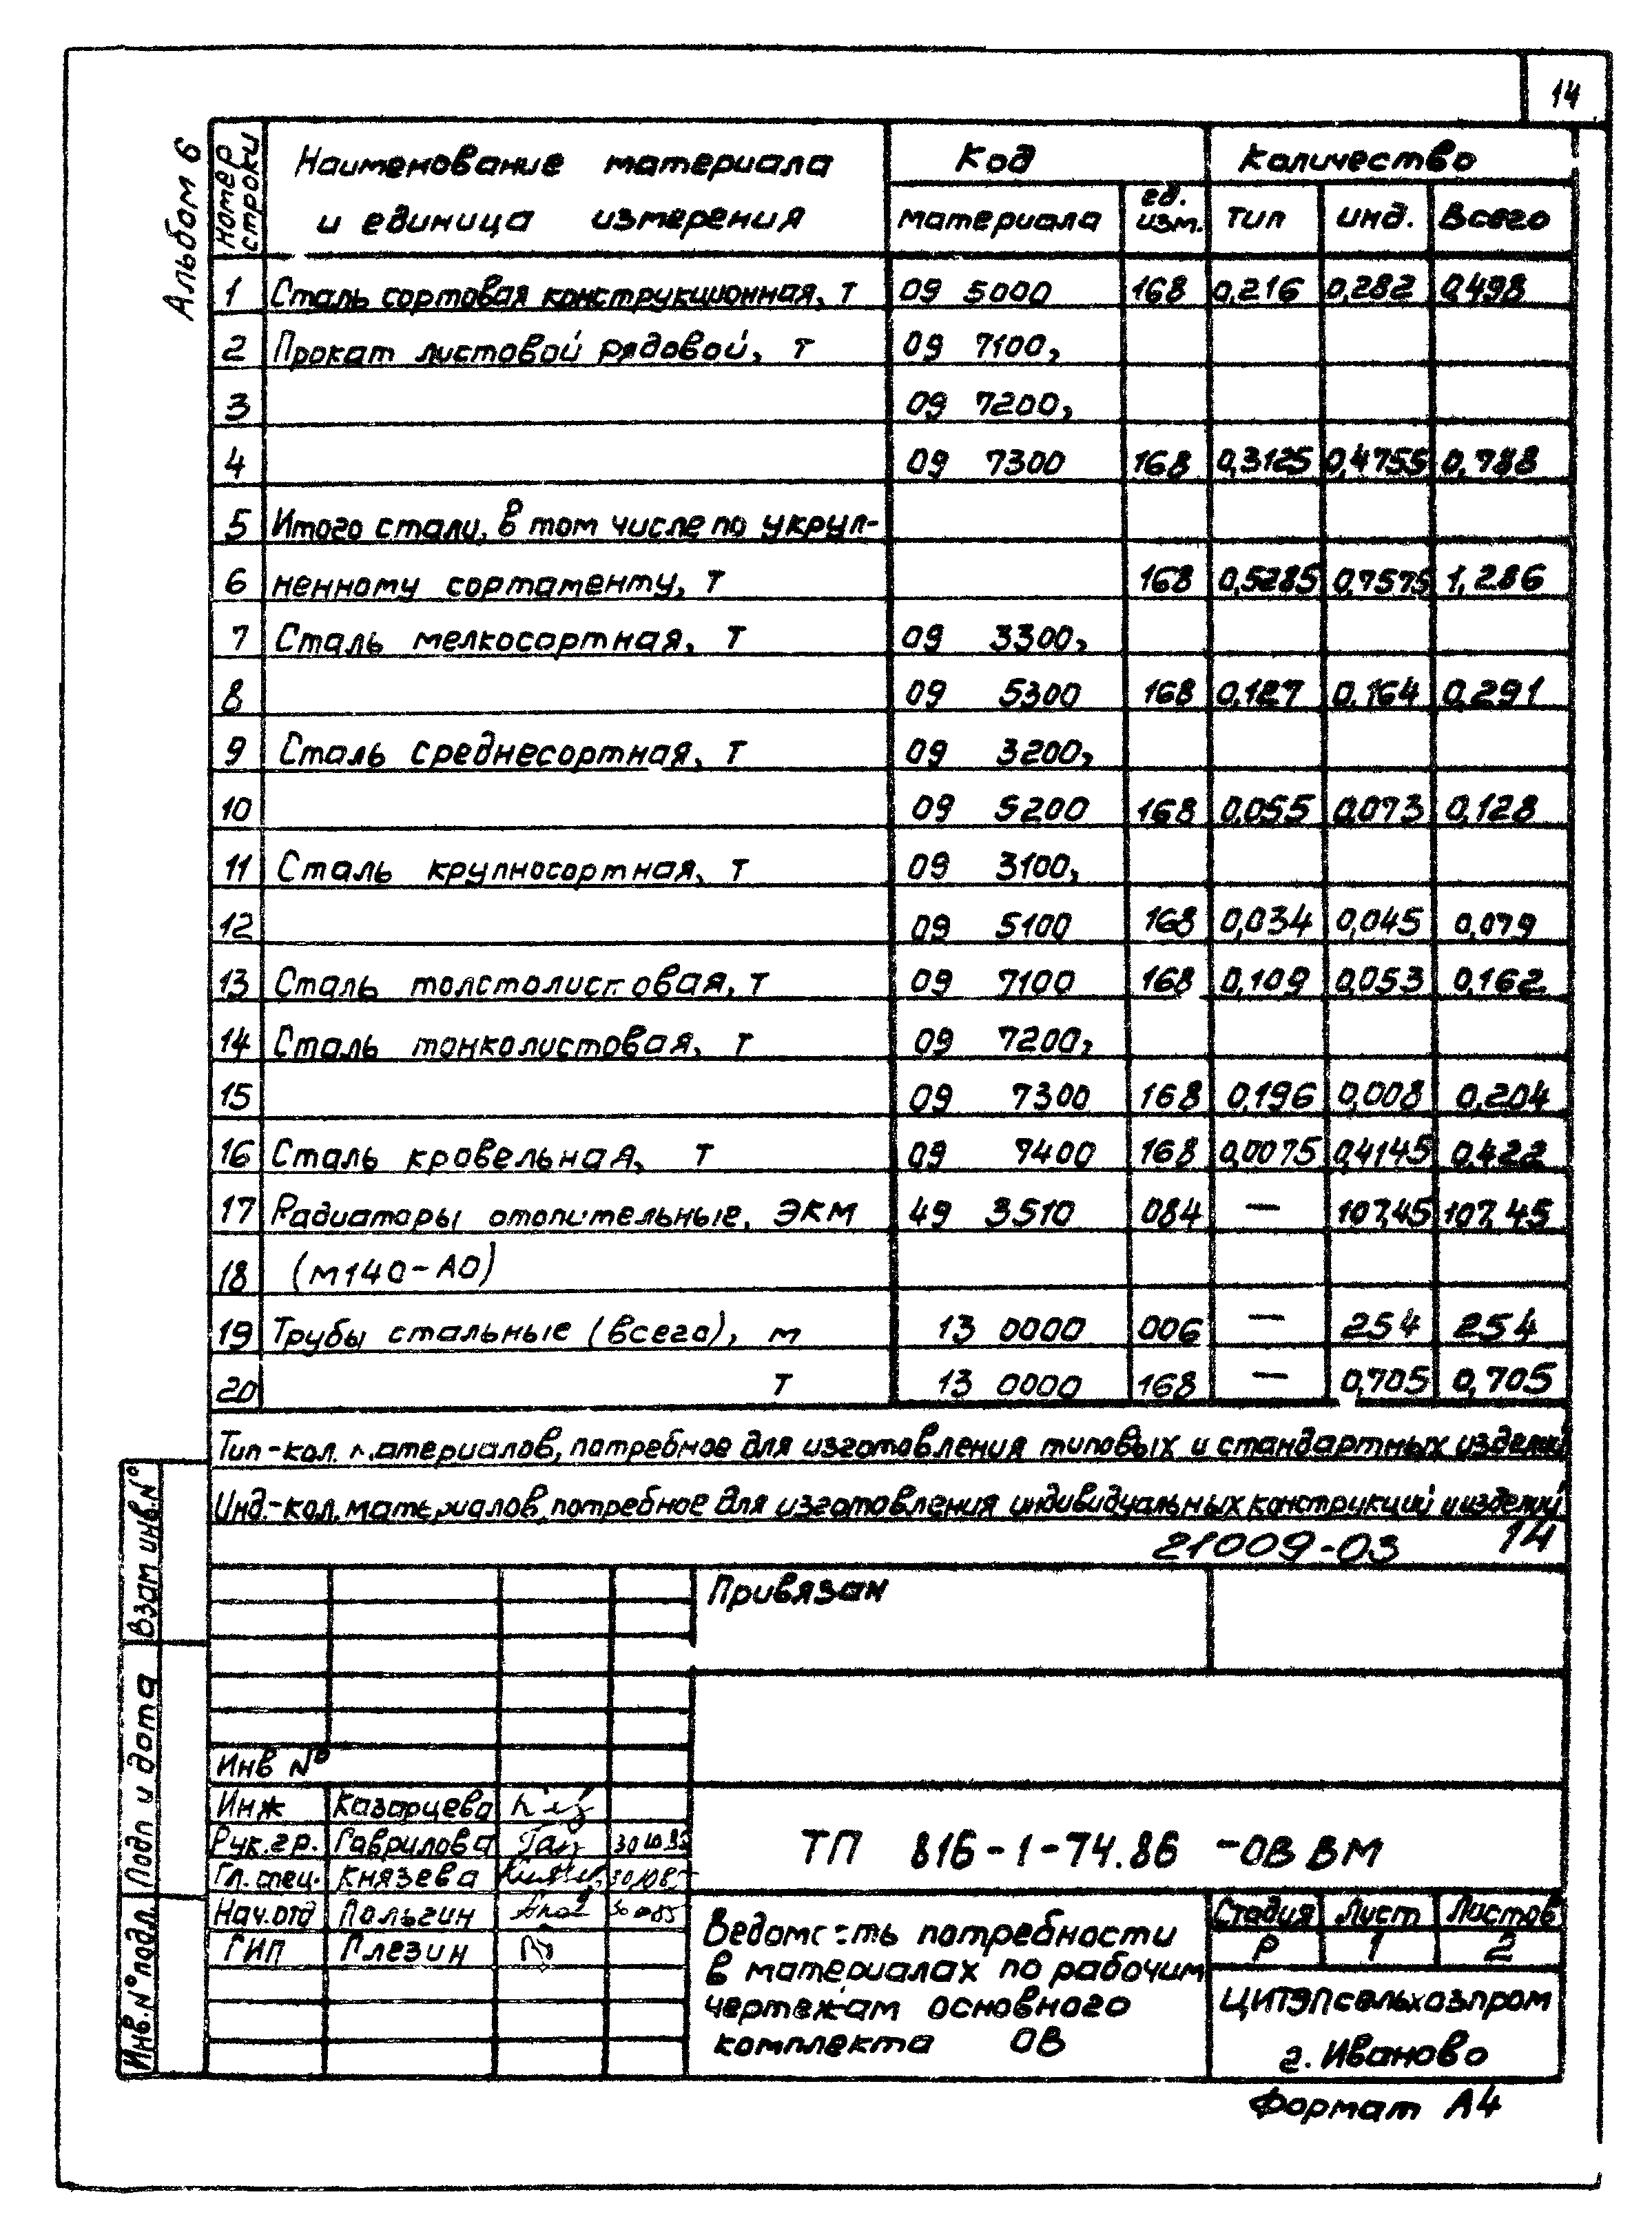 14
Альбом 6
Номер строки | Наименование материала и единица измерения | Код | Количество
материала | ед. изм. | тип | инд. | Всего
1 Сталь сортовая конструкционная, т 09 5000 168 0,216 0,282 0,498
2 Прокат листовой рядовой, т 09 7100,
3 09 7200,
4 09 7300 168 0,3125 0,4755 0,788
5 Итого стали, в том числе по укруп-
6 ненному сортаменту, т 168 0,5285 0,7575 1,286
7 Сталь мелкосортная, т 09 3300,
8 09 5300 168 0,127 0,164 0,291
9 Сталь среднесортная, т 09 3200,
10 09 5200 168 0,055 0,073 0,128
11 Сталь крупносортная, т 09 3100,
12 09 5100 168 0,034 0,045 0,079
13 Сталь толстолистовая, т 09 7100 168 0,109 0,053 0,162
14 Сталь тонколистовая, т 09 7200,
15 09 7300 168 0,196 0,008 0,204
16 Сталь кровельная, т 09 7400 168 0,0075 0,4145 0,422
17 Радиаторы отопительные, ЭКМ 49 3510 084 — 107,45 107,45
18 (М140-АО)
19 Трубы стальные (всего), м 13 0000 006 — 254 254
20 т 13 0000 168 — 0,705 0,705
Тип-кол. материалов, потребное для изготовления типовых и стандартных изделий
Инд.-кол. материалов, потребное для изготовления индивидуальных конструкций и изделий
21009-03 14
Взам инв.N°
Подп и дата
Инв.N° подл.
Привязан
Инв N°
Инж Казарцева
Рук.гр. Гаврилова 30.10.85
Гл.спец. Князева 30.10.85
Нач.отд Польгин
ГИП Плезин
ТП 816-1-74.86 -ОВ ВМ
Ведомость потребности
в материалах по рабочим
чертежам основного
комплекта ОВ
Стадия Лист Листов
Р 1 2
ЦИТЭПсельхозпром
г. Иваново
Формат А4